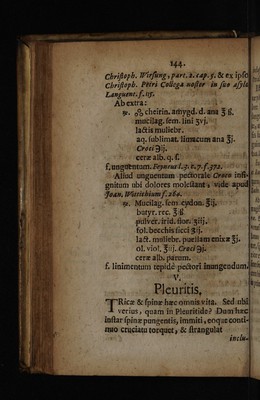 144.
Christoph. Wirsung, part. 2. cap. 5. & ex ipso
Christoph. Petri Collega noster in suo asylo
Languent. f. 115.
Ab extra:
cheirin. amygd. d. ana ℥ß.
mucilag. sem. lini ʒvj.
lactis muliebr.
aq. sublimat. limacum ana ℥j.
Croci ℈ij.
ceræ alb. q. s.
f. unguentum. l. 3. t. 7. f. 372.
Aliud unguentum pectorale Croco insi-
gnitum ubi dolores molestant, vide apud
Joan. f. 284.
℞. Mucilag. sem. cydon. ℥ij.
butyr. rec. ℥ß.
pulver. irid. flor. ʒiij.
fol. becchii sicci ʒij.
lact. muliebr. puellam enixæ ℥j.
ol. viol. ℥iij. Croci ℈j.
ceræ alb. parum.
f. linimentum tepidè pectori inungendum.
V.
Pleuritis,
TRicæ & spinæ hæc omnis vita. Sed ubi
verius, quam in Pleuritide? Dum hæc
instar spinæ pungentis, immiti, eoque conti-
nuo cruciatu torquet, & strangulat
inclu-